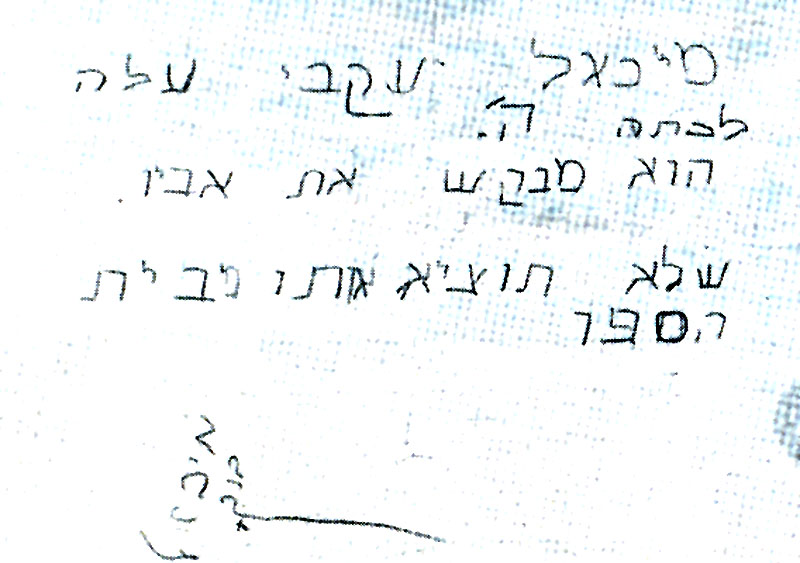 מיכאל יעקבי עלה
לכתה ה'.
הוא מבקש את אביו.
שלא תוציא אותו מבית
הספר